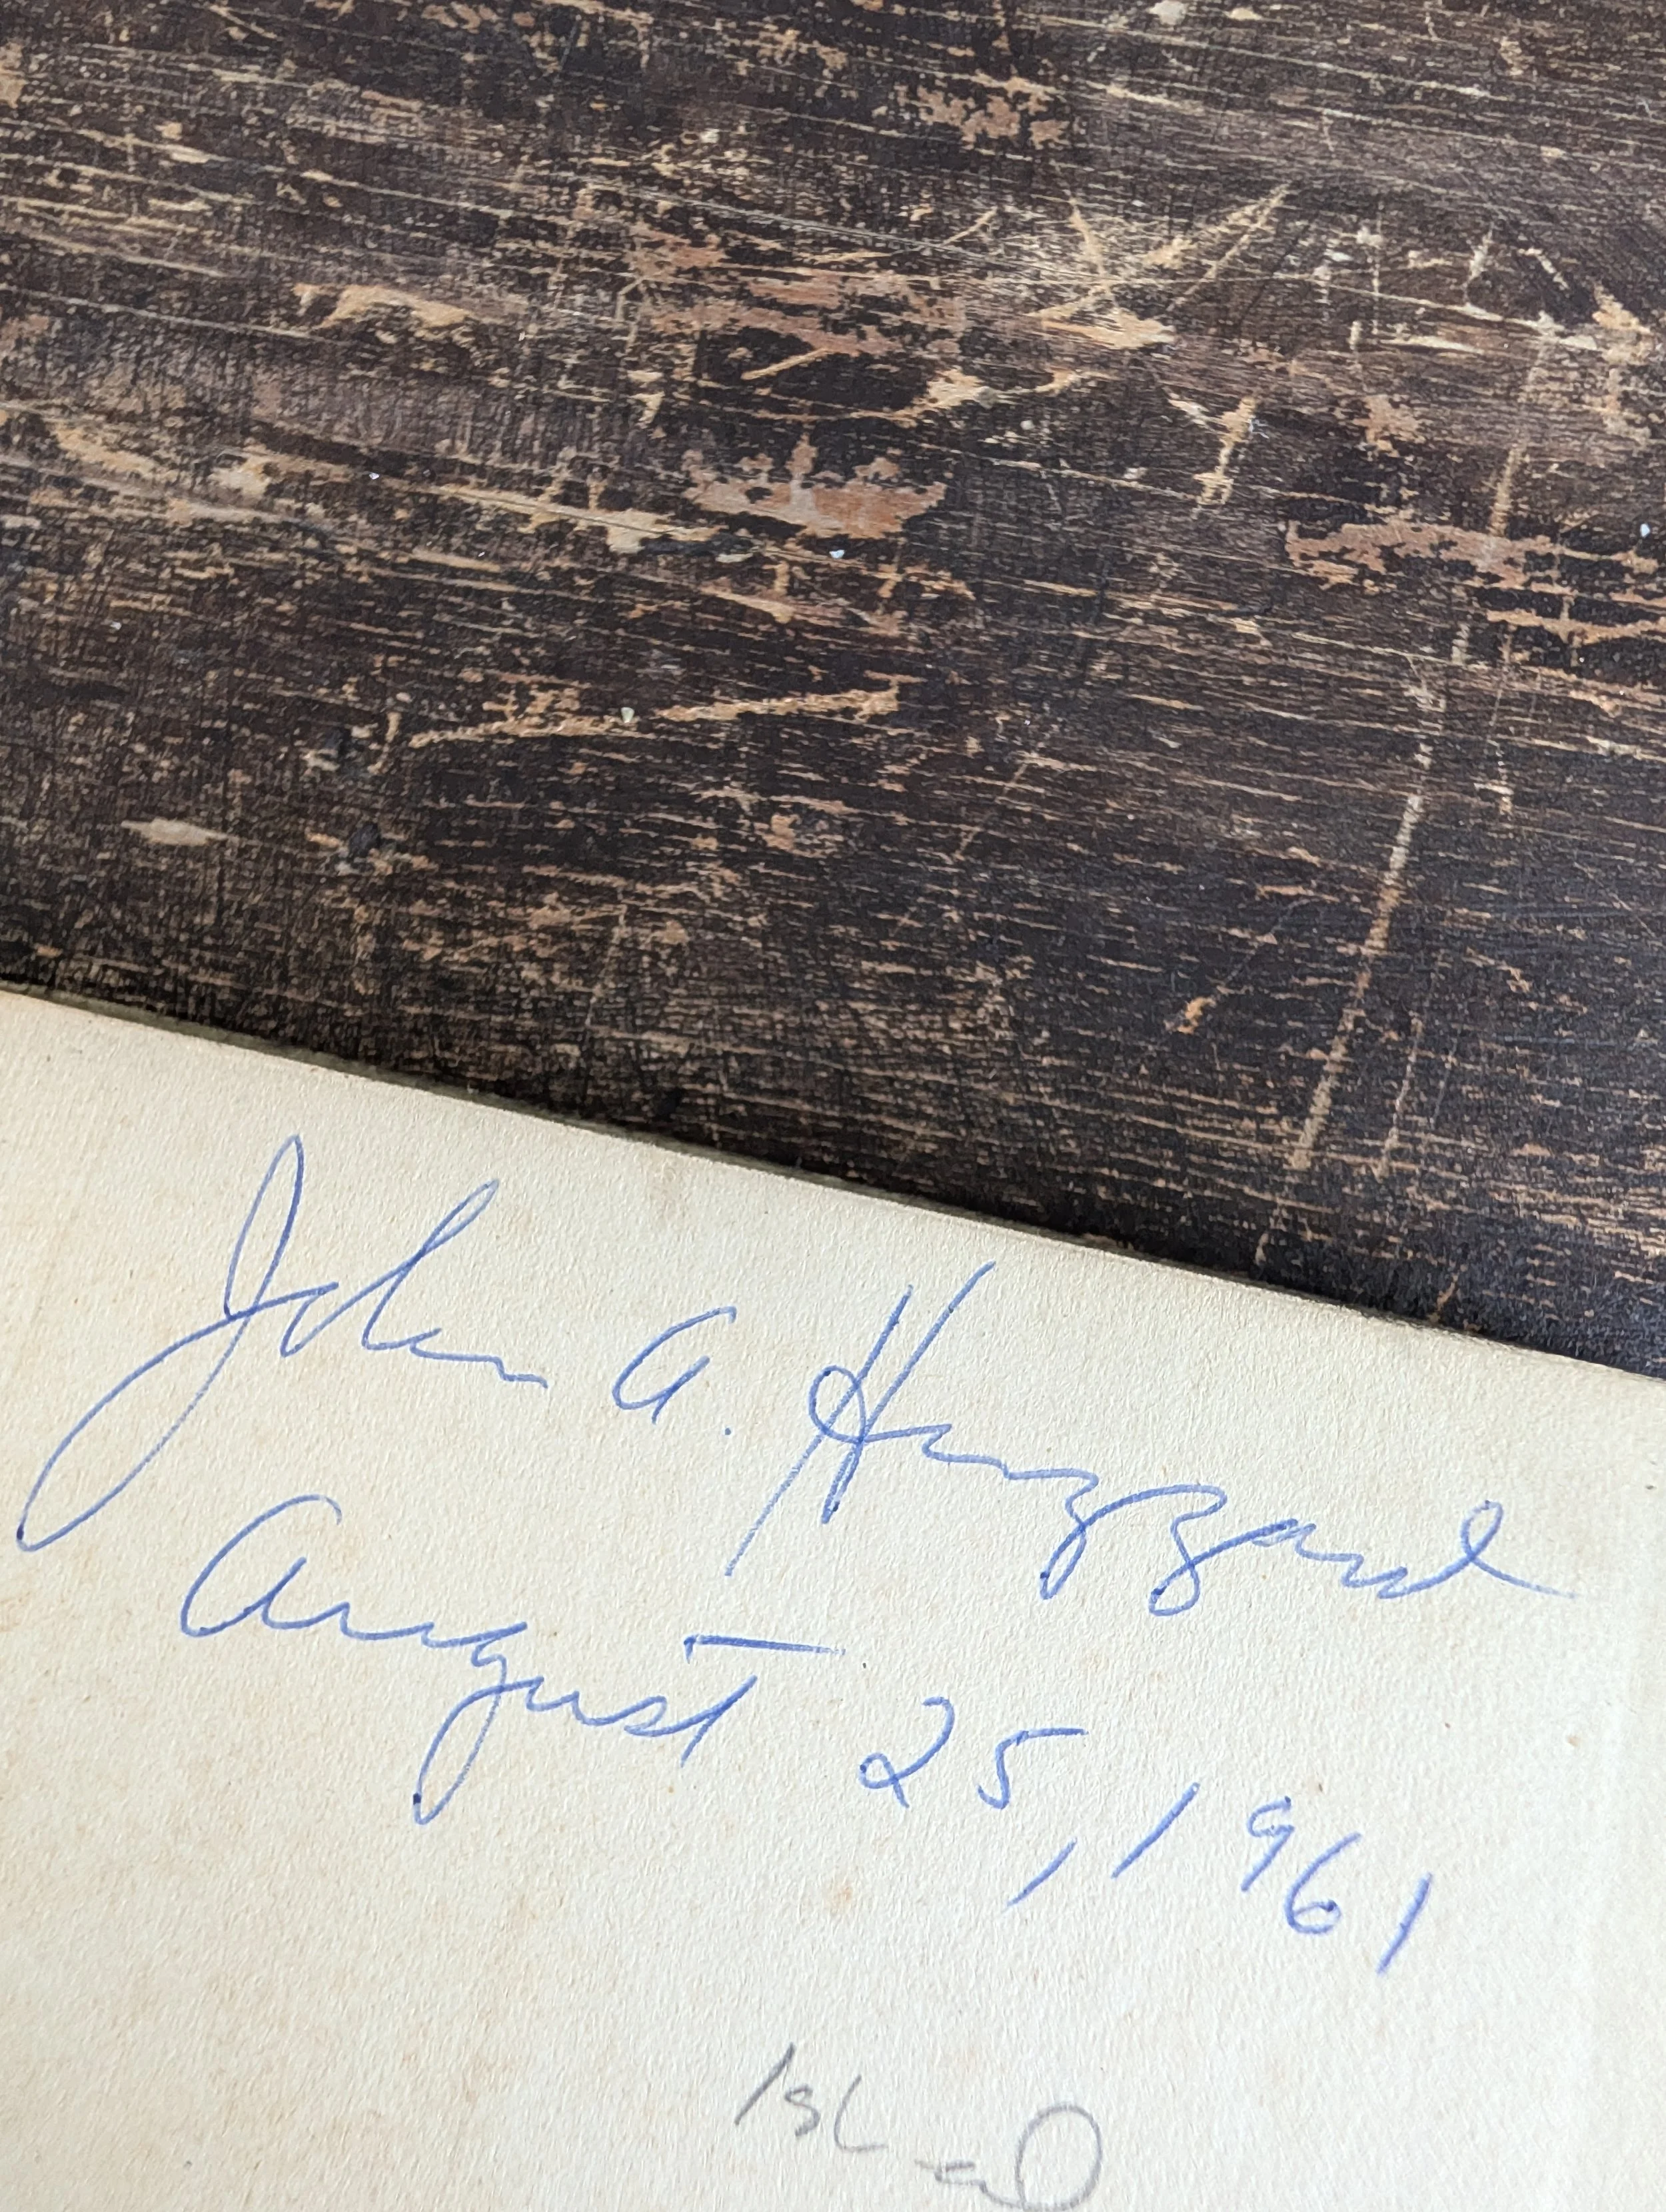 John A. Huzzard
August 25, 1961
1st ed